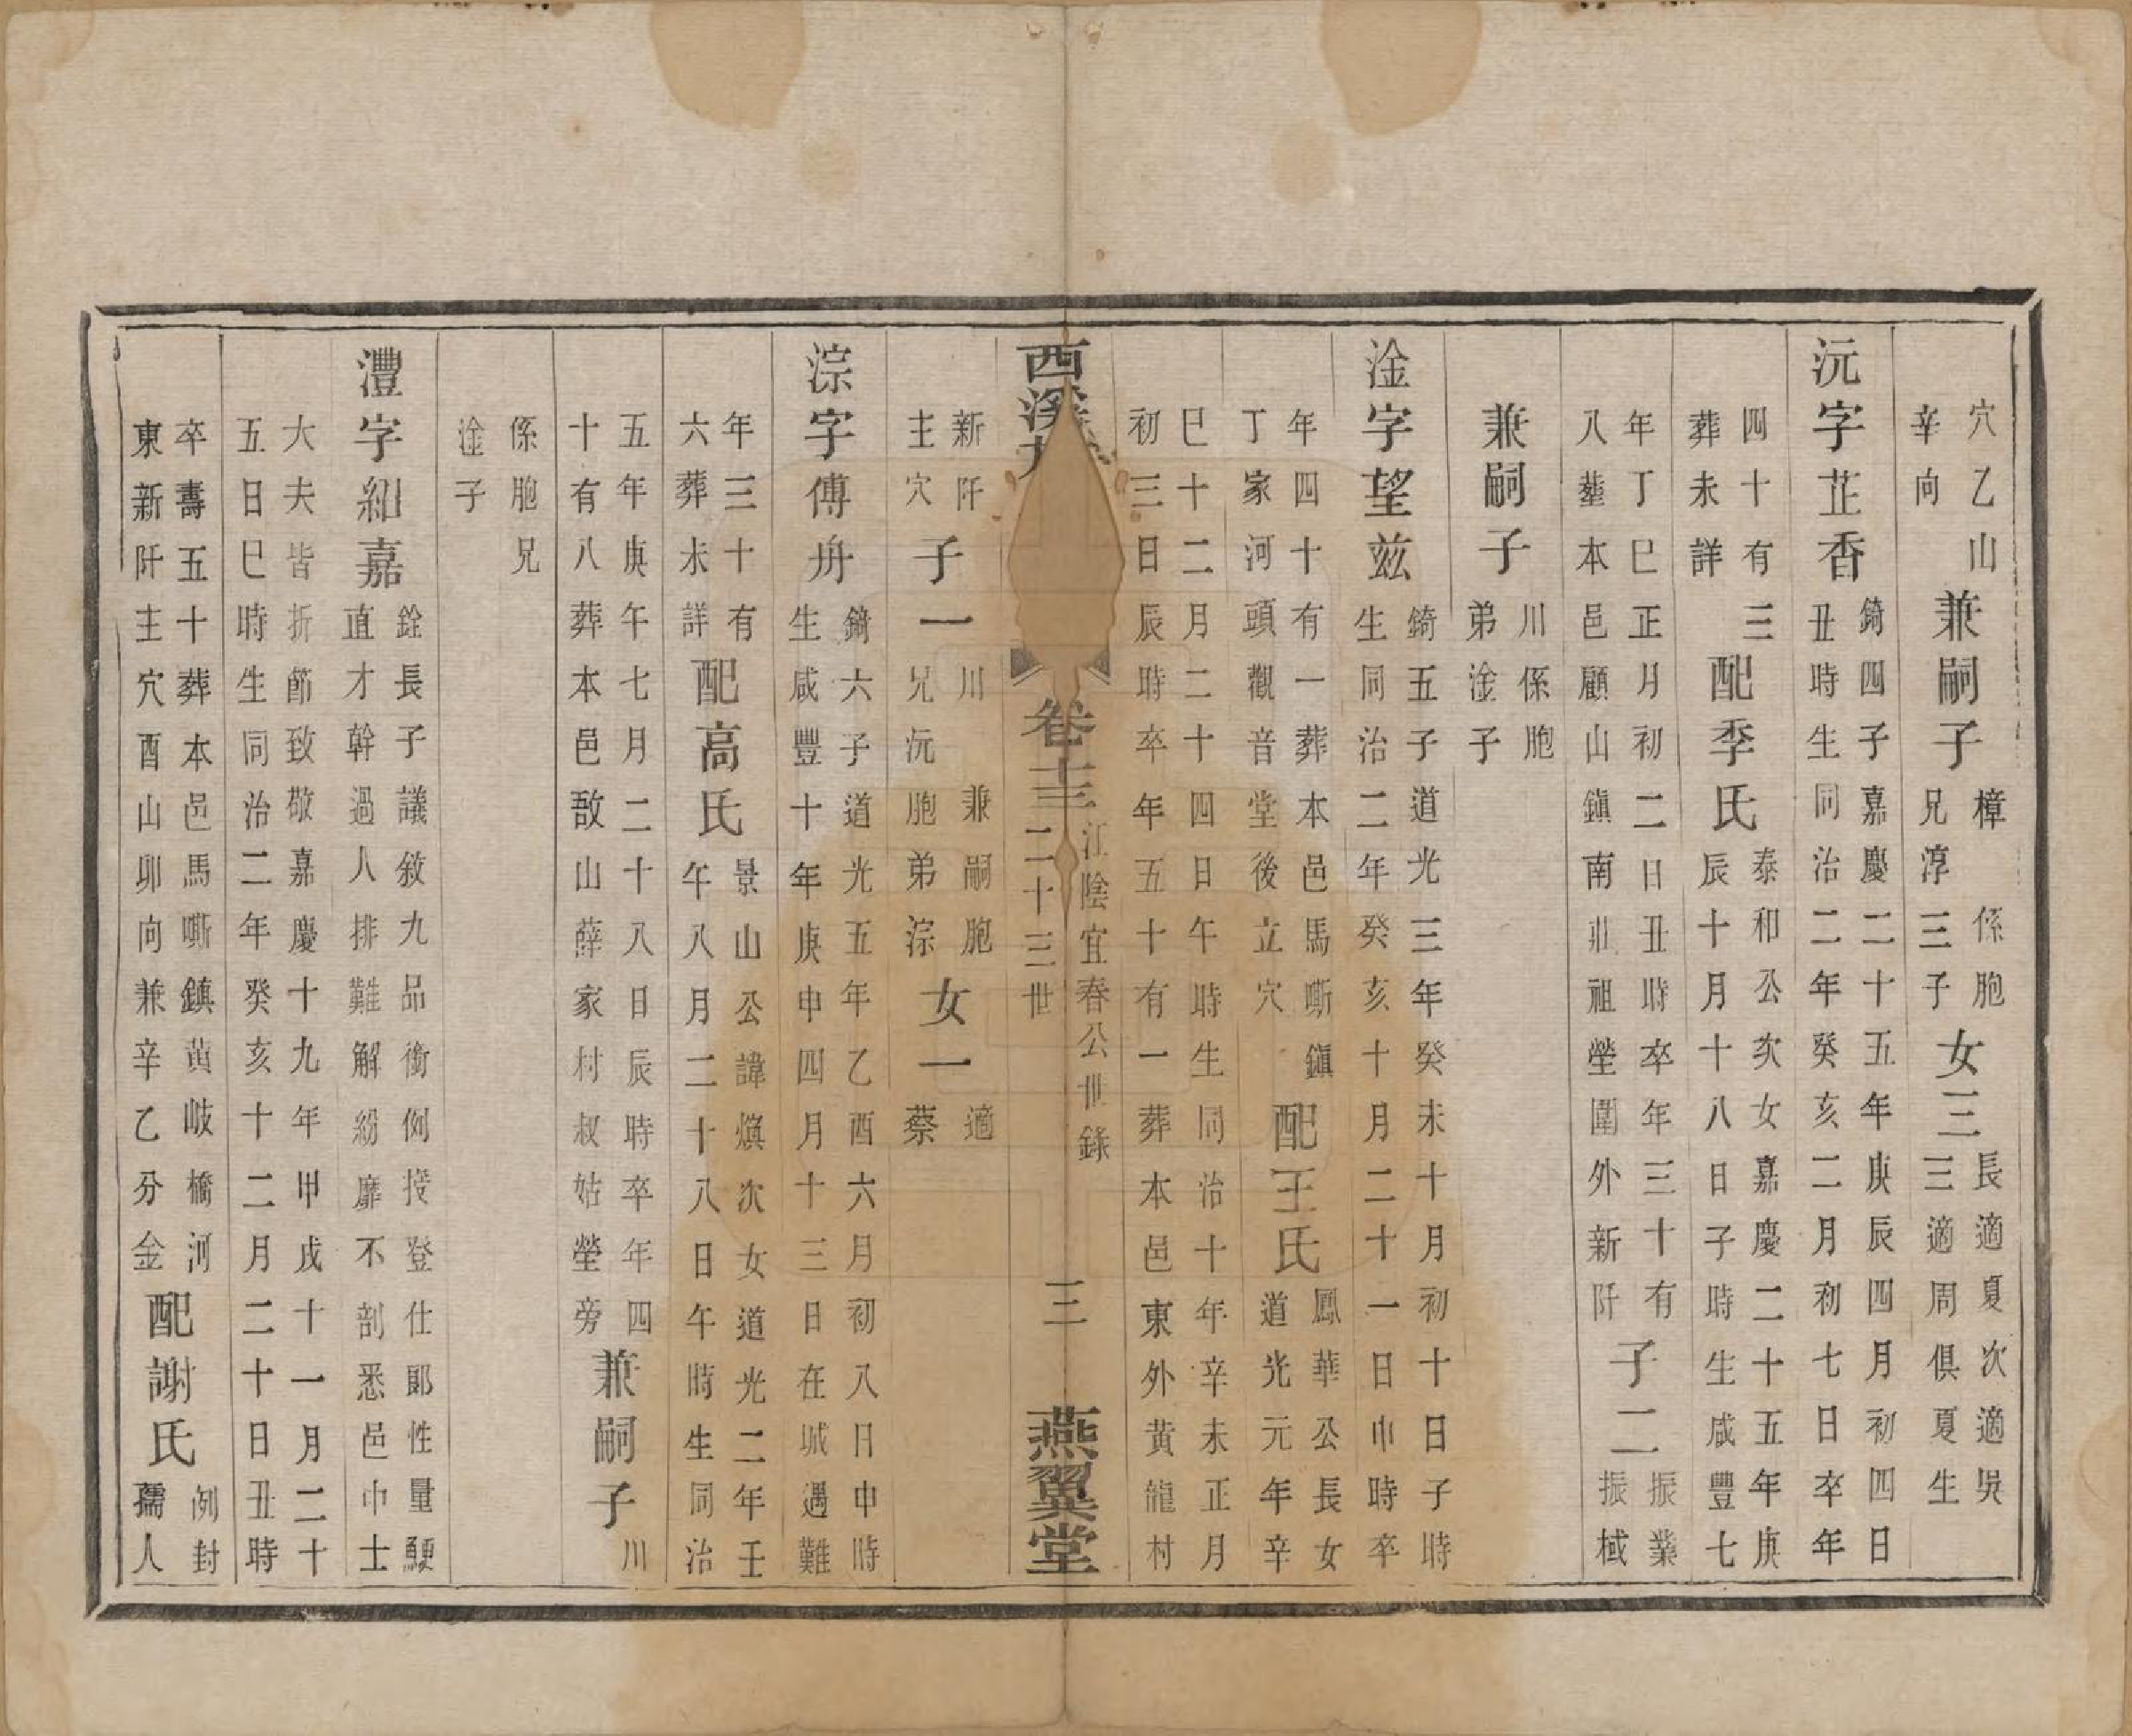 穴乙山
辛向
兼嗣子
樟係胞
兄淳三子
女三
長適夏次適吳
三適周俱夏生
沅字芷香
錡四子嘉慶二十五年庚辰四月初四日
丑時生同治二年癸亥二月初七日卒年
四十有三
葬未詳
配季氏
泰和公次女嘉慶二十五年庚
辰十月十八日子時生咸豐七
年丁巳正月初二日丑時卒年三十有
八塟本邑顧山鎮南壯祖塋圍外新阡
子二
振業
振棫
兼嗣子
川係胞
弟淦子
淦字望茲
錡五子道光三年癸未十月初十日子時
生同治二年癸亥十月二十一日巾時卒
年四十有一葬本邑馬嘶鎮
丁家河頭觀音堂後立穴
配王氏
鳳華公長女
道光元年辛
巳十二月二十四日午時生同治十年辛未正月
初三日辰時卒年五十有一葬本邑東外黃龍村
西溪
卷十三
江陰宜春公世錄
二十三世
三
燕翼堂
新阡
主穴
子一
川兼嗣胞
兄沅胞弟淙
女一
適
蔡
淙字傅舟
錡六子道光五年乙酉六月初八日申時
生咸豐十年庚申四月十三日在城遇難
年三十有
六葬未詳
配高氏
景山公諱熉次女道光二年壬
午八月二十八日午時生同治
五年庚午七月二十八日辰時卒年四
十有八葬本邑敔山薛家村叔姑塋旁
兼嗣子
川
係胞兄
淦子
灃字紃嘉
銓長子議敘九品銜例授登仕郎性量鯁
直才幹過人排難解紛靡不剖悉邑巾士
大夫皆折節致敬嘉慶十九年甲戌十一月二十
五日巳時生同治二年癸亥十二月二十日丑時
卒壽五十葬本邑馬嘶鎮黃岐橋河
東新阡主穴酉山卯向兼辛乙分金
配謝氏
例封
孺人